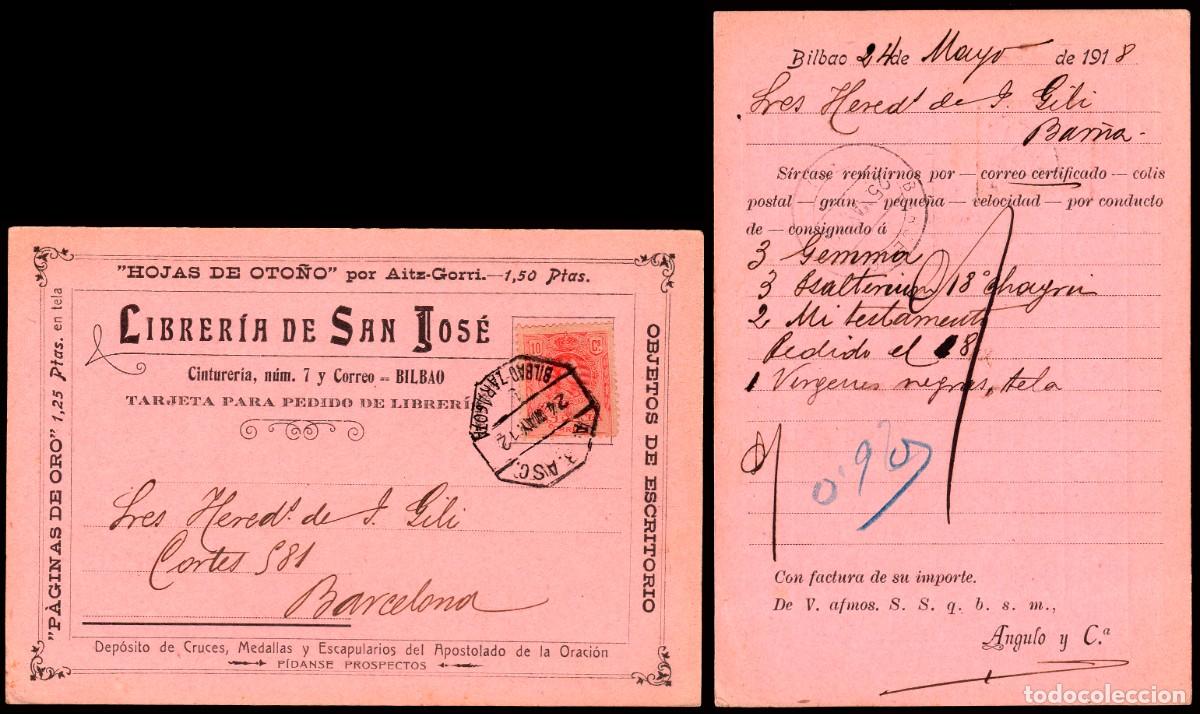 "HOJAS DE OTOÑO" por Aitz-Gorri.—1,50 Ptas.
"PÁGINAS DE ORO" 1,25 Ptas. en tela
LIBRERÍA DE SAN JOSÉ
Cinturería, núm. 7 y Correo — BILBAO
TARJETA PARA PEDIDO DE LIBRERÍ
OBJETOS DE ESCRITORIO
10 Cs.
BILBAO-ZARAGOZA
24 MAY 12
ASC.
Sres Hered.s de J. Gili
Cortes 581
Barcelona
Depósito de Cruces, Medallas y Escapularios del Apostolado de la Oración
PÍDANSE PROSPECTOS
Bilbao 24 de Mayo de 1918
Sres Hered.s de J. Gili
Barña-
Sírcase remitirnos por — correo certificado — colis
postal — gran pequeña — velocidad — por conducto
de — consignado á
3 Gemma
3 Psalterium 18º chagrin
2 Mi testamento
Pedido el 18
1 Virgenes negras, tela
0'90
Con factura de su importe.
De V. afmos. S. S. q. b. s. m.,
Angulo y C.ª
todocoleccion